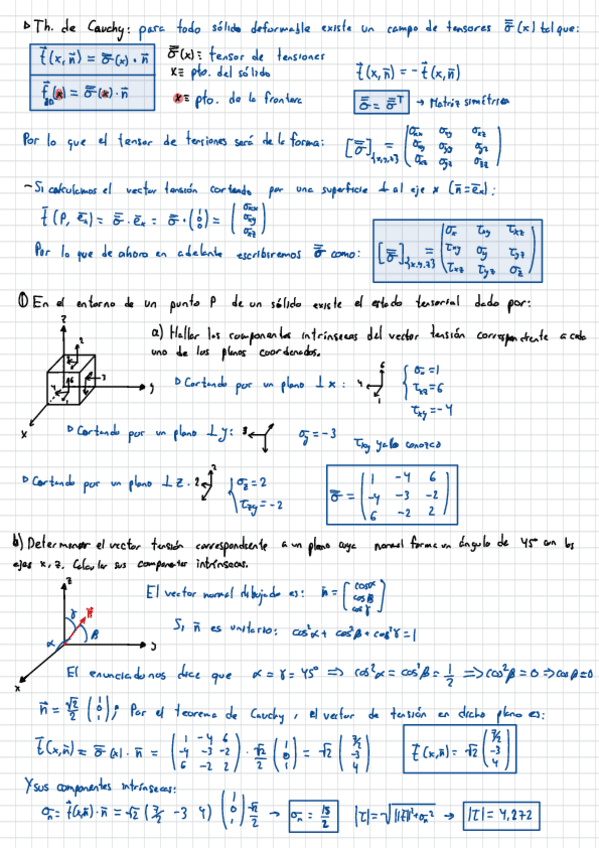 ▷ Th. de Cauchy: para todo sólido deformable existe un campo de tensores σ̿(x) tal que:
t⃗(x,n⃗) = σ̿(x)·n⃗
σ̿(x) ≡ tensor de tensiones
x ≡ pto. del sólido
t⃗(x,n⃗) = -t⃗(x,n⃗)
f⃗∂D(x) = σ̿(x)·n⃗
x ≡ pto. de la frontera
σ̿ = σ̿ᵀ → Matriz simétrica
Por lo que el tensor de tensiones será de la forma: [σ̿]{x,y,z} = (σxx σxy σxz
σxy σyy σyz
σxz σyz σzz)
~ Si calculamos el vector tensión cortando por una superficie ⊥ al eje x (n⃗=e⃗x):
t⃗(P, e⃗x) = σ̿·e⃗x = σ̿·(1 0 0) = (σxx σxy σxz)
Por lo que de ahora en adelante escribiremos σ̿ como: [σ̿]{x,y,z} = (σx τxy τxz
τxy σy τyz
τxz τyz σz)
① En el entorno de un punto P de un sólido existe el estado tensorial dado por:
a) Hallar las componentes intrínsecas del vector tensión correspondiente a cada
uno de los planos coordenados.
z
y
x
▷ Cortando por un plano ⊥ x: σx = 1
τxz = 6
τxy = -4
▷ Cortando por un plano ⊥ y: σy = -3 τxy ya lo conozco
▷ Cortando por un plano ⊥ z. σz = 2
τzy = -2
σ̿ = (1 -4 6
-4 -3 -2
6 -2 2)
b) Determinar el vector tensión correspondiente a un plano cuya normal forma un ángulo de 45° con los
ejes x, z. Calcular sus componentes intrínsecas.
z
n⃗
γ
β
α
y
x
El vector normal dibujado es: n⃗ = [cosα cosβ cosγ]
Si n⃗ es unitario: cos²α + cos²β + cos²γ = 1
El enunciado nos dice que α = γ = 45° ⇒ cos²α = cos²β = 1/2 ⇒ cos²β = 0 ⇒ cosβ = 0
n⃗ = √2/2 (1 0 1); Por el teorema de Cauchy, el vector de tensión en dicho plano es:
t⃗(x,n⃗) = σ̿(x)·n⃗ = (1 -4 6
-4 -3 -2
6 -2 2) · √2/2 (1 0 1) = √2 (7/2 -3 4)
t⃗(x,n⃗) = √2 (7/2 -3 4)
Y sus componentes intrínsecas:
σn = t⃗(x,n⃗)·n⃗ = √2 (7/2 -3 4) (1 0 1) √2/2 → σn = 15/2 |τ| = √(|t⃗|²+σn²) → |τ| = 4,272